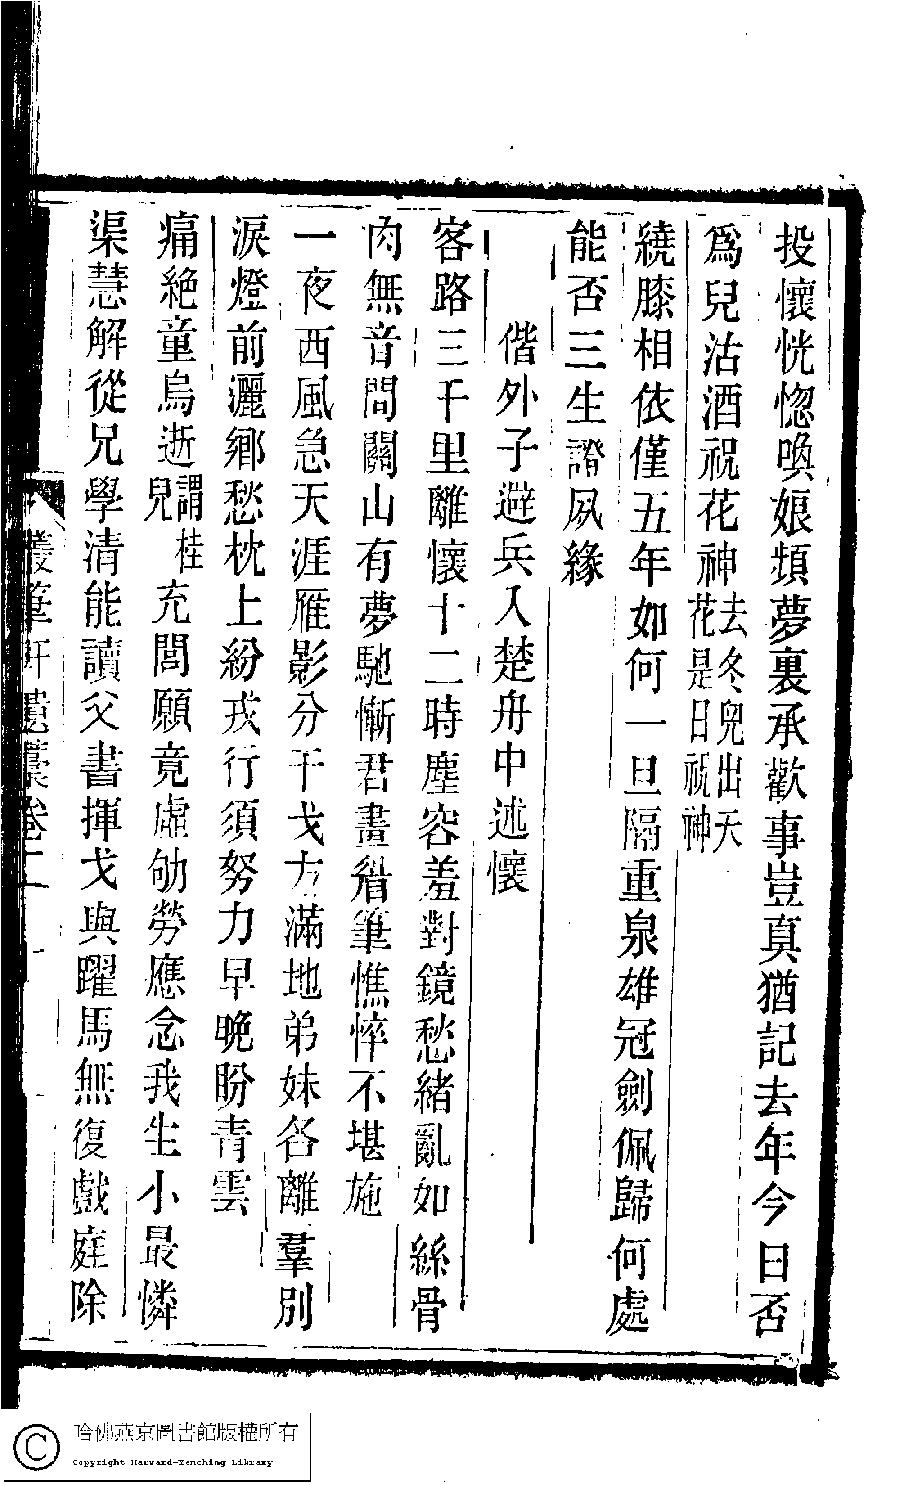 投懷恍惚喚娘頻夢裏承歡事豈真猶記去年今日否
爲兒沽酒祝花神去冬兒出天花是日祝神
繞膝相依僅五年如何一旦隔重泉雄冠劍佩歸何處
能否三生證夙緣
偕外子避兵入楚舟中述懷
客路三千里離懷十二時塵容羞對鏡愁緒亂如絲骨
肉無音問關山有夢馳慚君畫眉筆憔悴不堪施
一夜西風急天涯雁影分干戈方滿地弟妹各離羣別
淚燈前灑鄉愁枕上紛戎行須努力早晚盼青雲
痛絶童烏逝謂桂兒充閭願竟虛劬勞應念我生小最憐
渠慧解從兄學清能讀父書揮戈與躍馬無復戲庭除
筆軒遺藁卷二
哈佛燕京圖書館版權所有
Copyright Harvard-Yenching Library